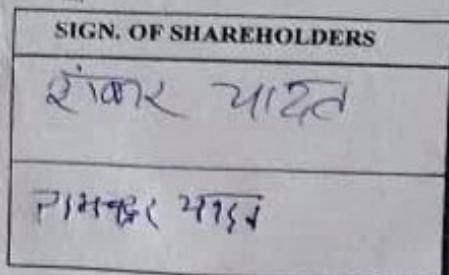 SIGN. OF SHAREHOLDERS
शंकर यादव
यादव